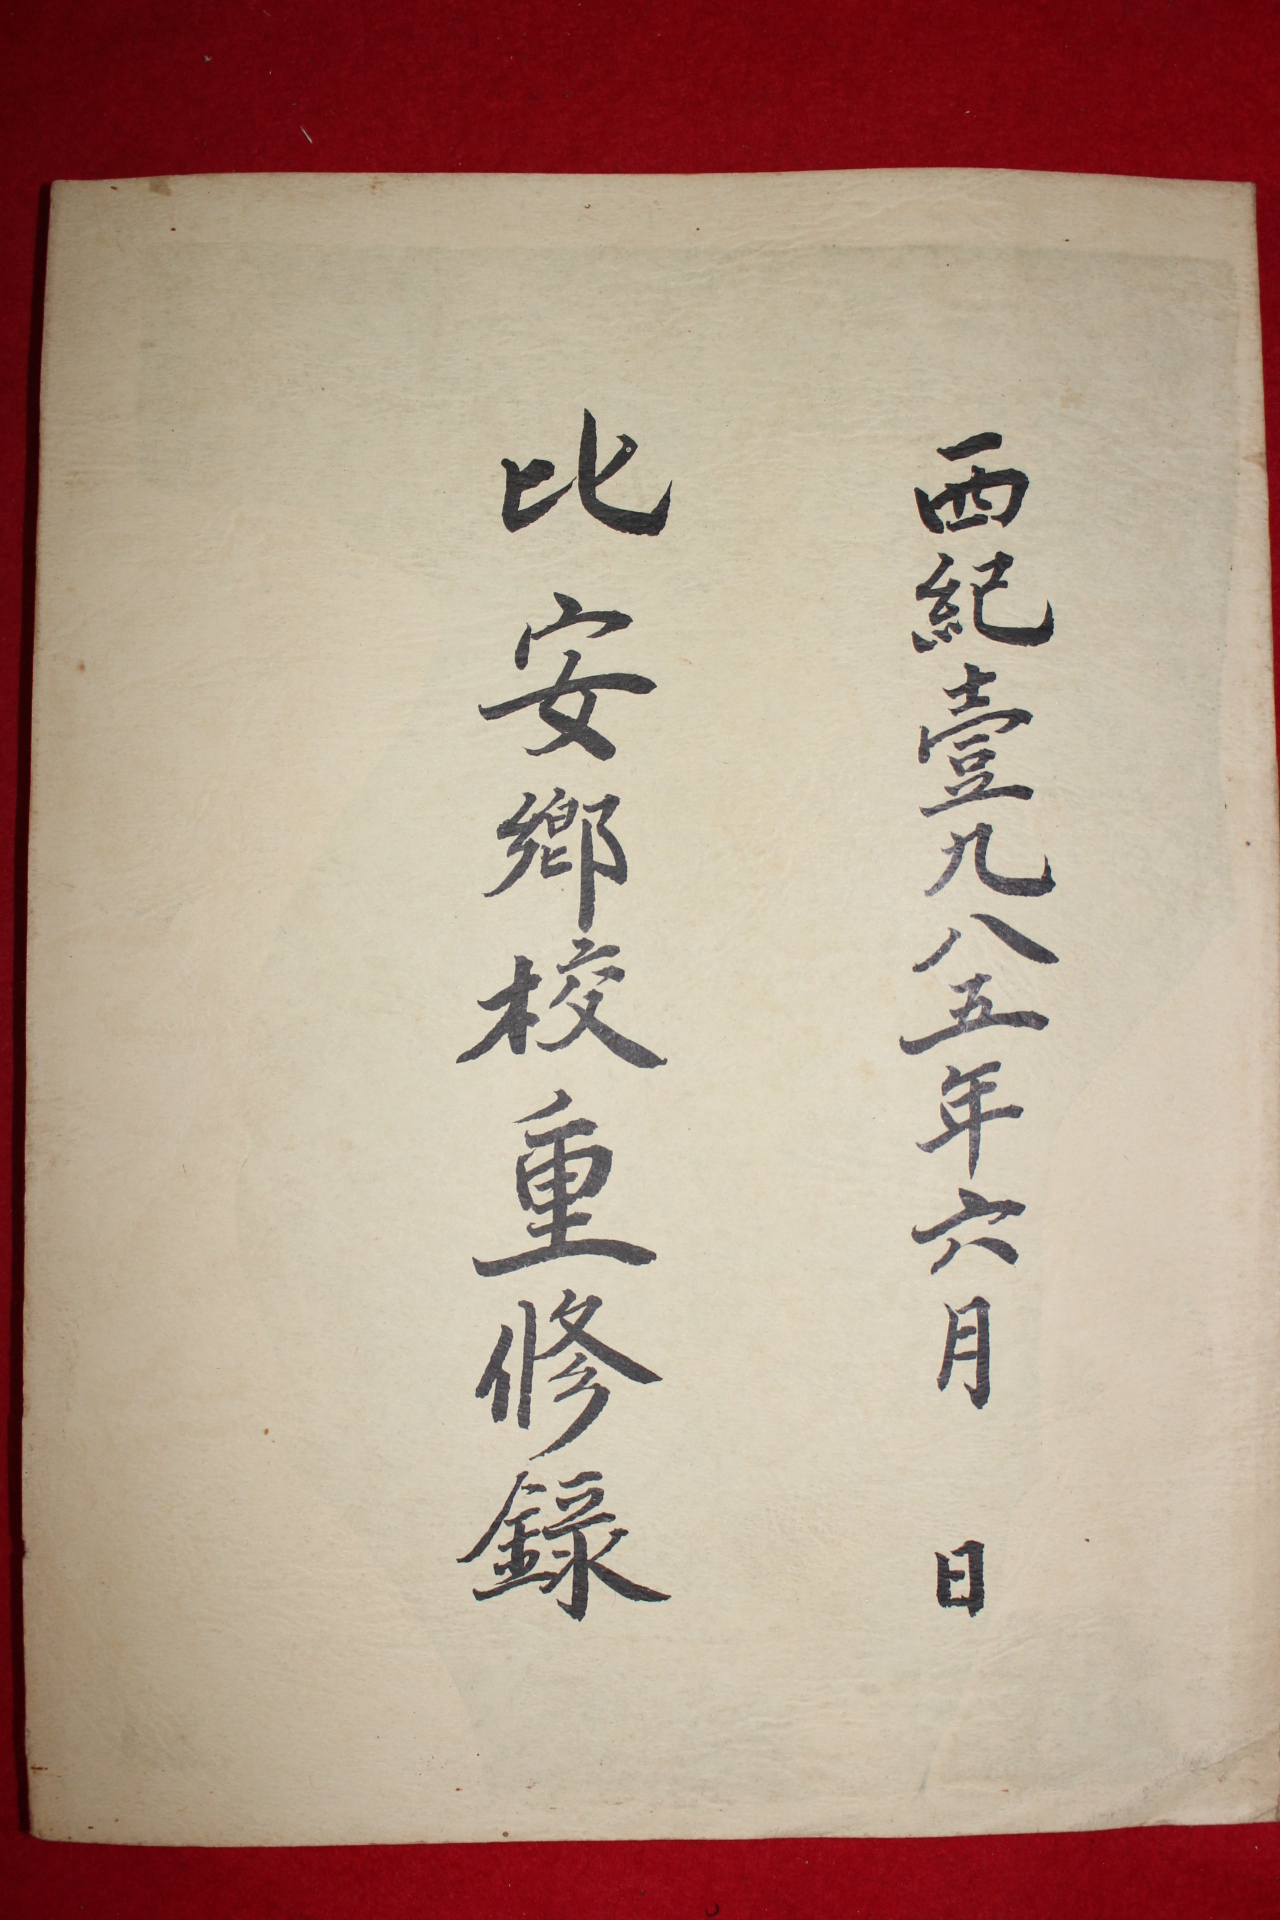 西紀壹九八五年六月 日
比安鄕校重修錄